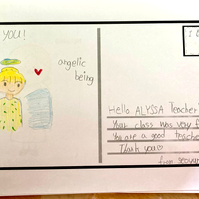 YOU!
angelic
being
Hello ALYSSA Teacher
Your class was very f
You are a good teache
Thank you!!
from seoyun